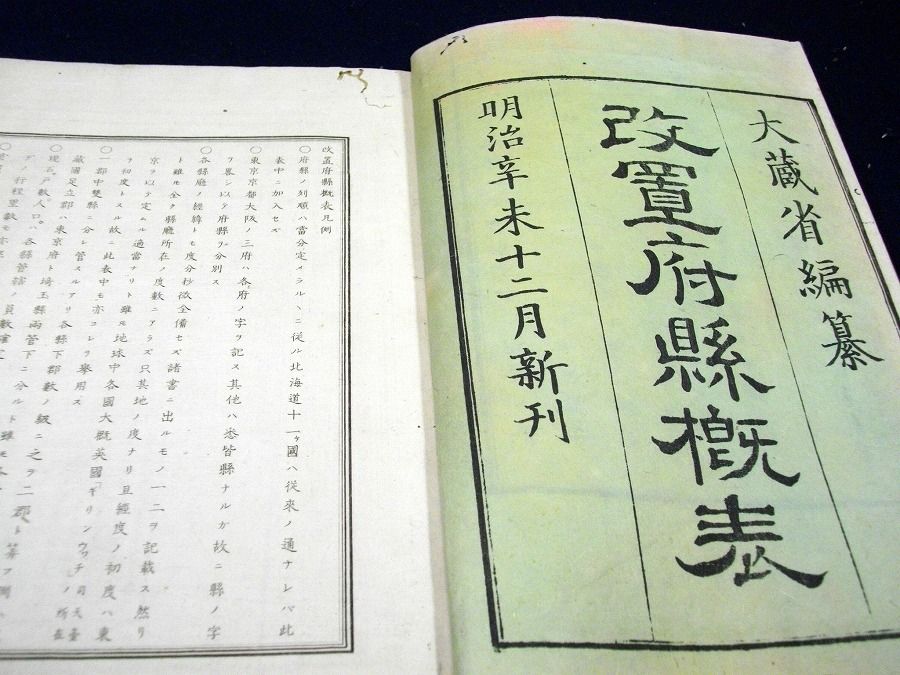 大蔵省編纂
改置府縣概表
明治辛未十二月新刊
改置府縣概表凡例
〇府縣ノ列順ハ當分定メラルヽニ從ル北海道十一ヶ國ハ從來ノ通ナレバ此
表中ニ加入セズ
〇東京京都大阪ノ三府ハ各府ノ字ヲ記ス其他ハ悉皆縣ナルガ故ニ縣ノ字
ヲ畧シ以テ府縣ヲ分別ス
〇各縣廳ノ經緯トモ度分秒微全備セズ諸書ニ出ルモノ一二ヲ記載ス然リ
ト雖モ全ク縣廳所在ノ度數ニアラズ只其地ノ度ナリ且經度ノ初度ハ東
京ヲ以テ定ムル適當ナリト雖モ地球中各國大概英國ギリンウヰチ司天臺ノ所在
ヲ初度トスル故ニ此表中モ亦コレヲ擧用ス
〇一郡中雙縣ニ分レ管スルアリ各縣下郡數ノ級ニ之ヲ二郡ト算フ例ハ
藏國足立郡ハ東京府ト埼玉縣兩管下ニ分ルト雖モ
〇現石戸數人口ハ各縣管轄ノ員數確定